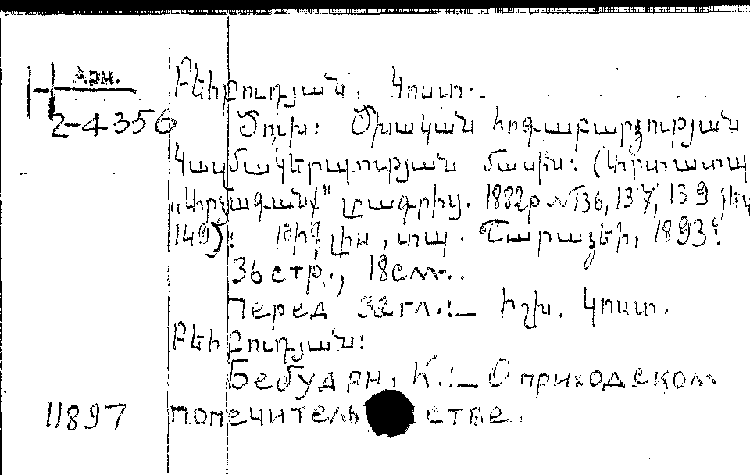 Арм. Բեհբուդյան, Կոստ.
2-4356 Ծուխ: Ծխական հոգաբարձության
կազմակերպության մասին: (Արտատպ
„Արձագանք" լրագրից. 1882թ №136, 137, 139 եւ
149): Թիֆլիս, տպ. Շարաձեի, 1893:
36 стр., 18см.
Перед загл.:— Իշխ. Կոստ.
Բեհբուդյան:
Бебудян, К.:— О приходском
11897 попечительстве.